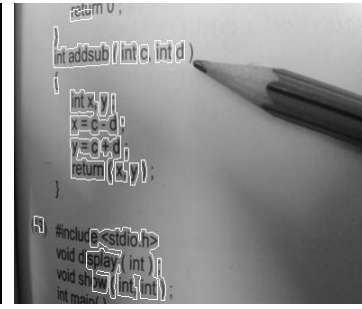 return 0 ;
}
int addsub ( int c, int d )
{
int x, y ;
x = c - d ;
y = c + d ;
return ( x, y ) ;
}
#include <stdio.h>
void display ( int ) ;
void show ( int, int ) ;
int main( )